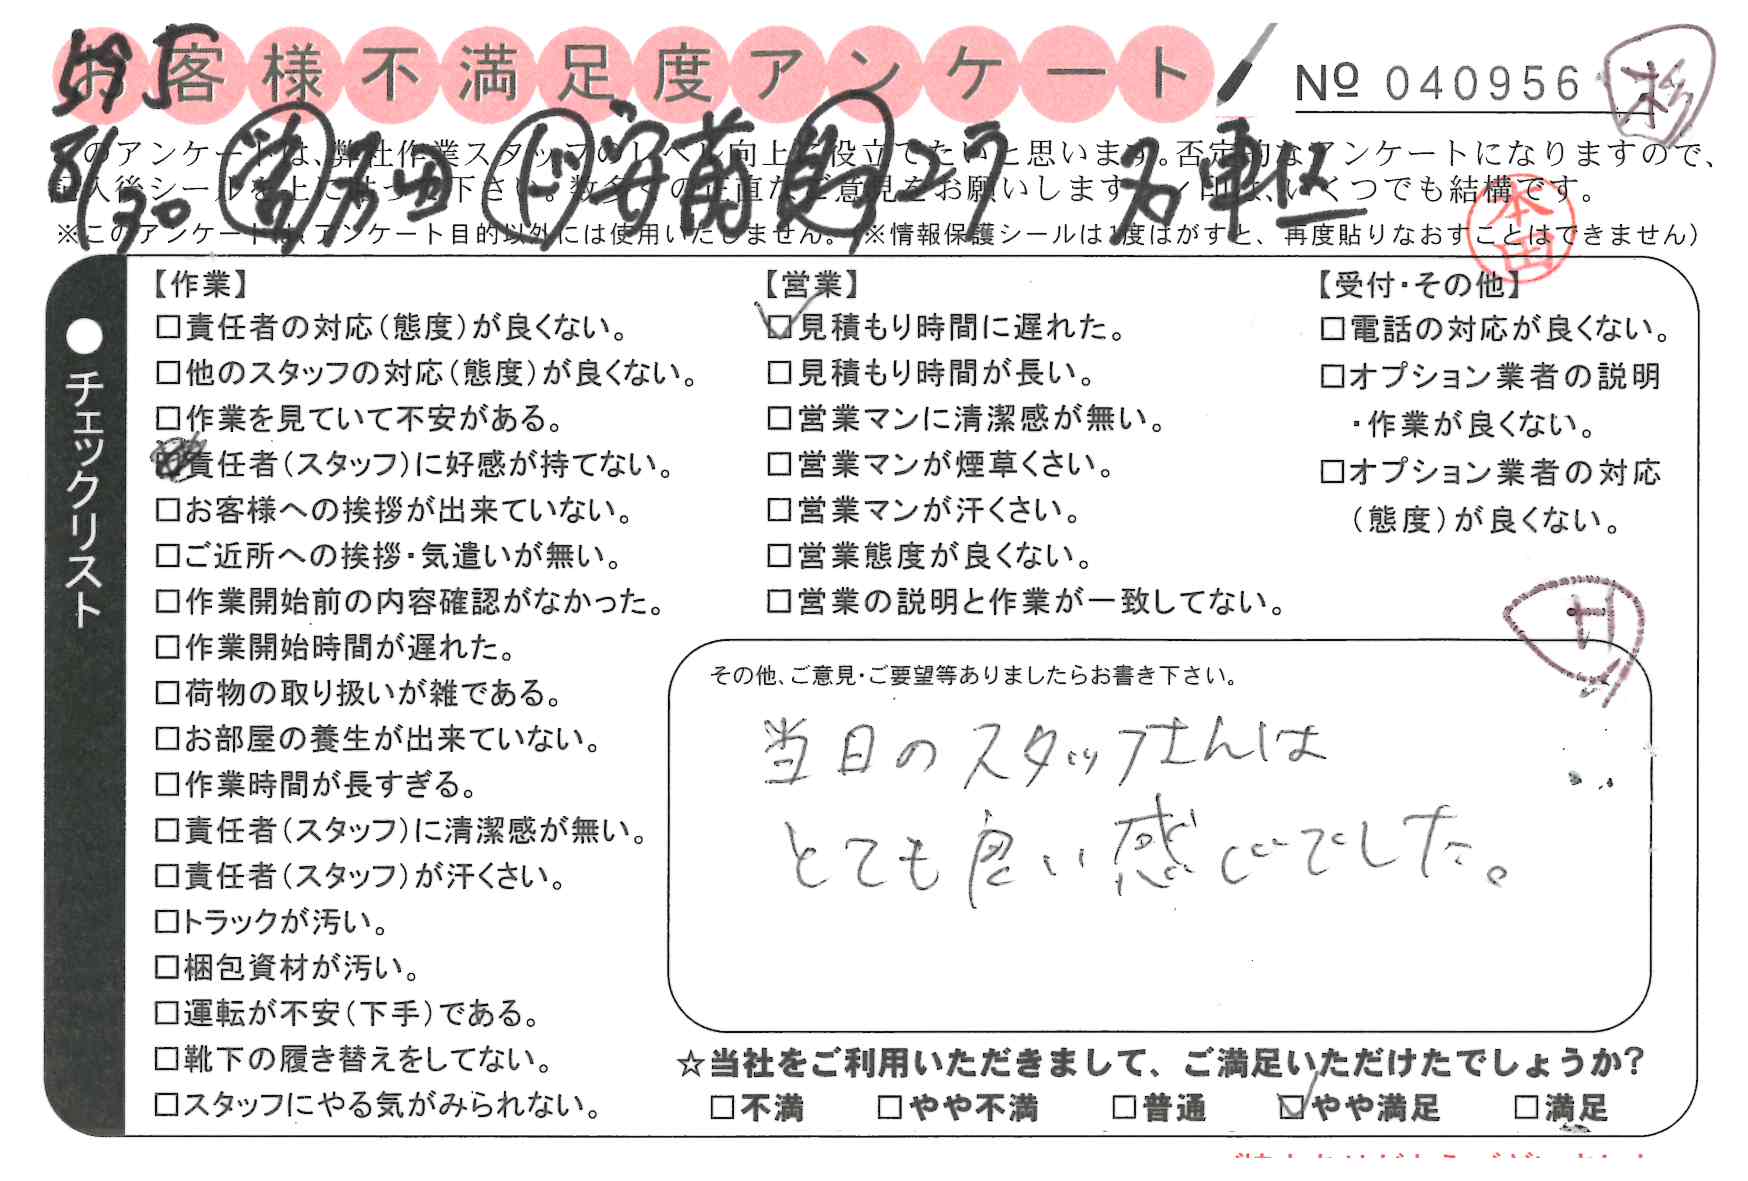 お客様不満足度アンケート
№ 040956
杉
このアンケートは、弊社作業スタッフのレベル向上に役立てたいと思います。否定的なアンケートになりますので、
記入後シールを上に貼って下さい。数多くの正直なご意見をお願いします。レ印は、いくつでも結構です。
※このアンケートは、アンケート目的以外には使用いたしません。(※情報保護シールは1度はがすと、再度貼りなおすことはできません)
本田
●チェックリスト
【作業】
□責任者の対応(態度)が良くない。
□他のスタッフの対応(態度)が良くない。
□作業を見ていて不安がある。
責任者(スタッフ)に好感が持てない。
□お客様への挨拶が出来ていない。
□ご近所への挨拶・気遣いが無い。
□作業開始前の内容確認がなかった。
□作業開始時間が遅れた。
□荷物の取り扱いが雑である。
□お部屋の養生が出来ていない。
□作業時間が長すぎる。
□責任者(スタッフ)に清潔感が無い。
□責任者(スタッフ)が汗くさい。
□トラックが汚い。
□梱包資材が汚い。
□運転が不安(下手)である。
□靴下の履き替えをしてない。
□スタッフにやる気がみられない。
【営業】
☑見積もり時間に遅れた。
□見積もり時間が長い。
□営業マンに清潔感が無い。
□営業マンが煙草くさい。
□営業マンが汗くさい。
□営業態度が良くない。
□営業の説明と作業が一致してない。
【受付・その他】
□電話の対応が良くない。
□オプション業者の説明
・作業が良くない。
□オプション業者の対応
(態度)が良くない。
その他、ご意見・ご要望等ありましたらお書き下さい。
当日のスタッフさんは
とても良い感じでした。
☆当社をご利用いただきまして、ご満足いただけたでしょうか?
□不満 □やや不満 □普通 ☑やや満足 □満足